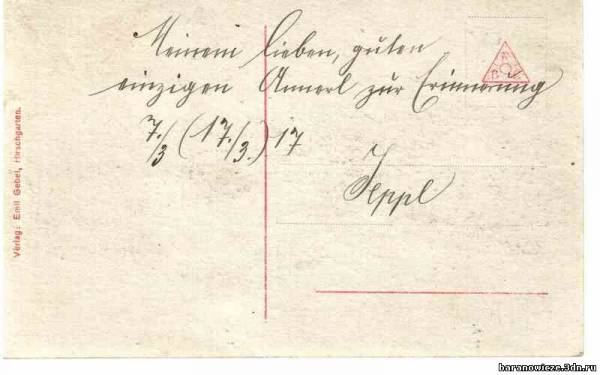 Meinem lieben, guten
einzigen Annerl zur Erinnerung
7./3 (17./3.) 17
Seppl
Verlag: Emil Gebel, Hirschgarten.
baranowicze.3dn.ru